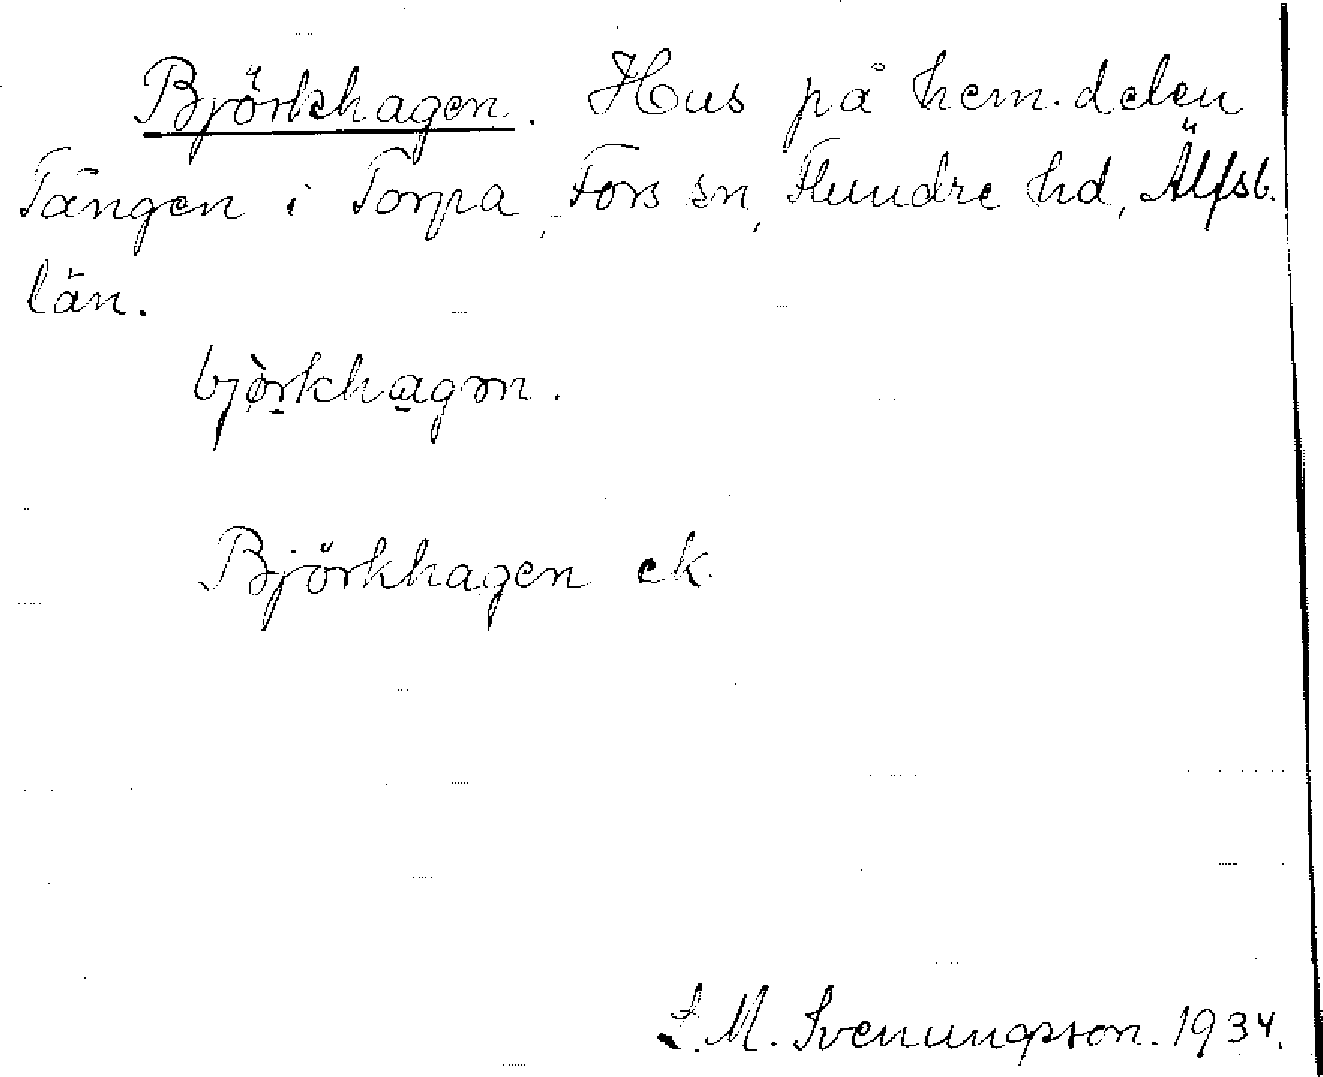 Björkhagen. Hus på hem.delen
Tången i Torpa, Fors sn, Flundre hd, Älfsb.
län.
bjòrkhagən.
Björkhagen ek.
S. M. Svenungsson. 1934.